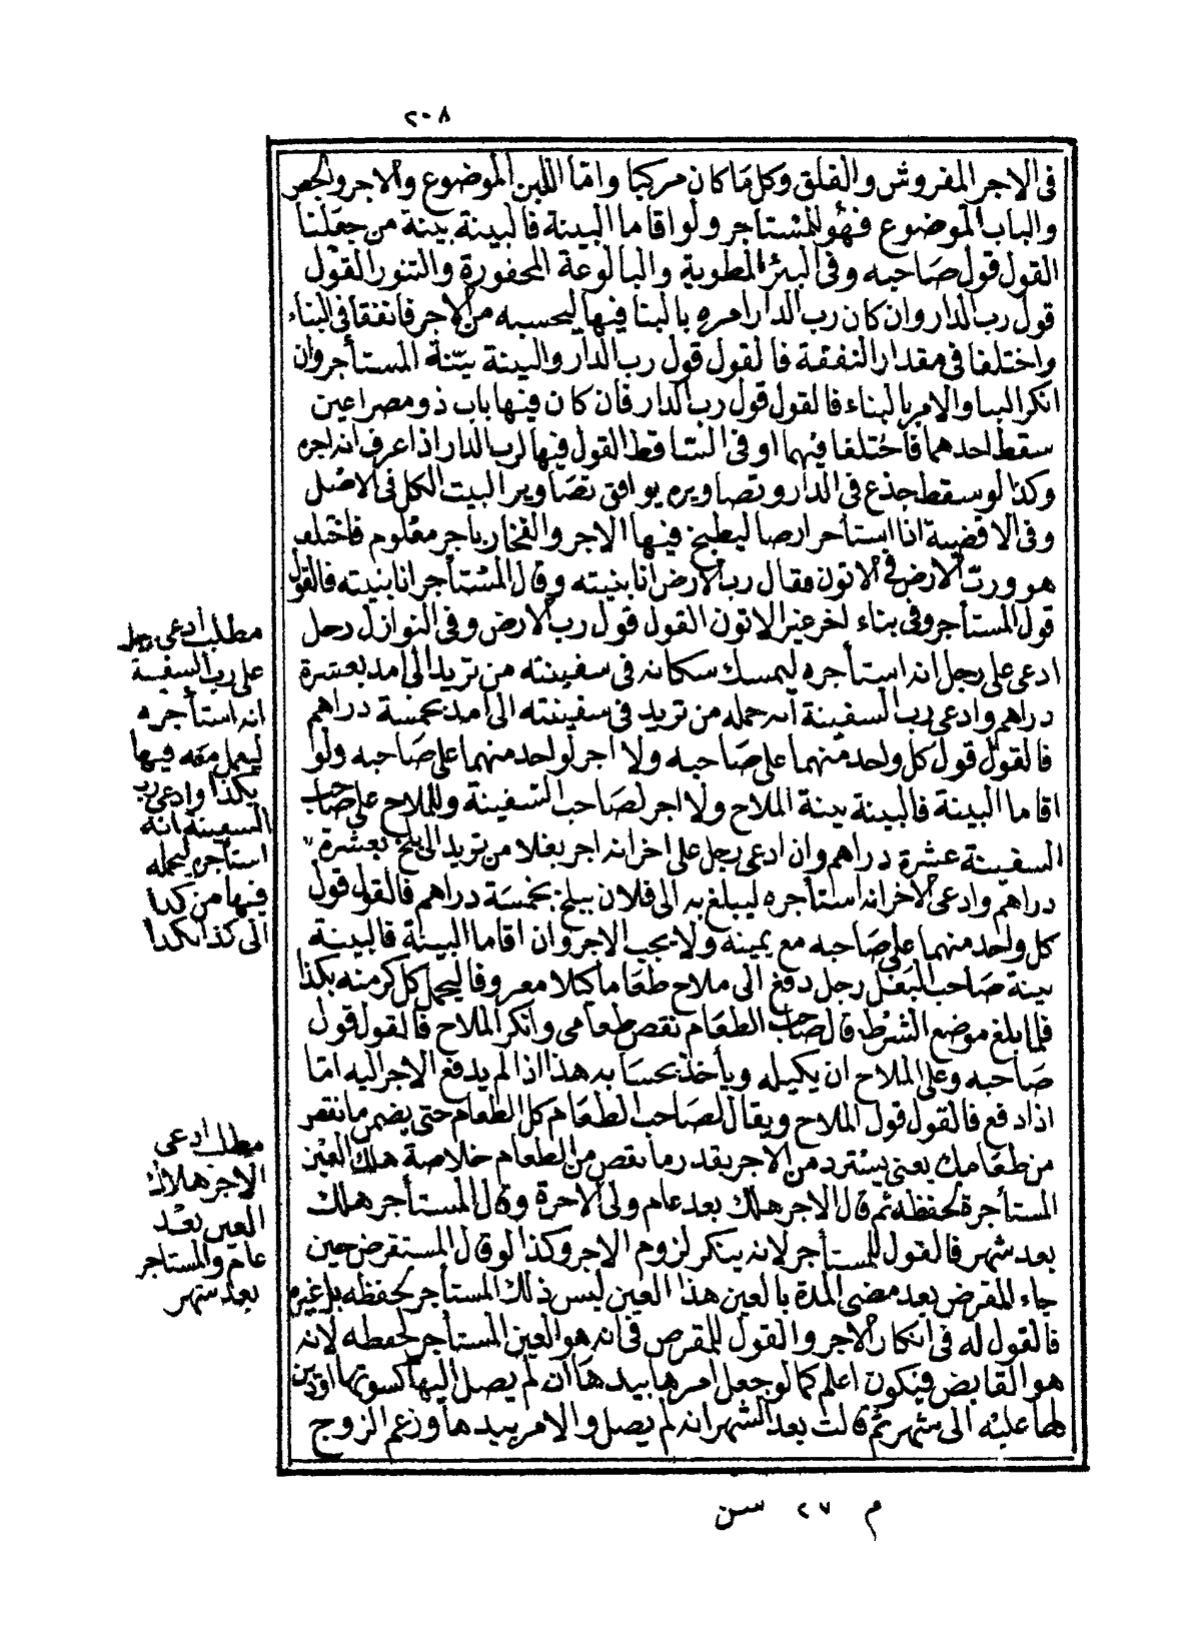 ٢٠٨
في الاجر المفروش والغلق وكل ما كان مركبا واما اللبن الموضوع والاجر والجص
والباب الموضوع فهو للمستاجر ولو اقاما البينة فالبينة بينة من جعلنا
القول قول صاحبه وفي البئر المطوية والبالوعة المحفورة والتنور القول
قول رب الدار وان كان رب الدار امره بالبنا فيها ليحسبه من الاجر فاتفقا في البناء
واختلفا في مقدار النفقة فالقول قول رب الدار والبينة بينة المستأجر وان
انكر البنا والامر بالبناء فالقول قول رب الدار فان كان فيها باب ذو مصراعين
سقط احدهما فاختلفا فيهما او في الساقط القول فيها لرب الدار اذا عرف انه اجره
وكذا لو سقط جذع في الدار وتصاويره يوافق تصاوير البيت الكل في الاصل
وفي الاقضية اذا استأجر ارضا ليطبخ فيها الاجر والفخار باجر معلوم فاختلف
هو ورب الارض في الاتون فقال رب الارض انا بنيته وقال المستأجر انا بنيته فالقول
قول المستأجر وفي بناء اخر غير الاتون القول قول رب الارض وفي النوازل رجل
ادعى على رجل انه استأجره ليمسك سكانه في سفينته من تريد الى امد بعشرة
دراهم وادعى رب السفينة انه حمله من تريد في سفينته الى امد بخمسة دراهم
فالقول قول كل واحد منهما على صاحبه ولا اجر لواحد منهما على صاحبه ولو
اقاما البينة فالبينة بينة الملاح ولا اجر لصاحب السفينة وللملاح على صاحب
السفينة عشرة دراهم وان ادعى رجل على اخر انه اجر بغلا من تريد الى بلخ بعشرة
دراهم وادعى الاخر انه استأجره ليبلغ به الى فلان ببلخ بخمسة دراهم فالقول قول
كل واحد منهما على صاحبه مع يمينه ولا يجب الاجر وان اقاما البينة فالبينة
بينة صاحب البغل رجل دفع الى ملاح طعاما كيلا معروفا ليحمل كل كر منه بكذا
فلما بلغ موضع الشرط قال صاحب الطعام نقص طعامي وانكر الملاح فالقول قول
صاحبه وعلى الملاح ان يكيله ويأخذ بحسابه هذا اذا لم يدفع الاجر اليه اما
اذا دفع فالقول قول الملاح ويقال لصاحب الطعام كل الطعام حتى يضمن ما نقص
من طعامك يعني يسترد من الاجر بقدر ما نقص من الطعام خلاصة هلك العين
المستأجرة لحفظه ثم قال الاجر هلك بعد عام ولي الاجرة وقال المستأجر هلك
بعد شهر فالقول للمستأجر لانه ينكر لزوم الاجر وكذا لو قال المستقرض حين
جاء المقرض بعد مضي المدة بالعين هذا العين ليس ذلك المستأجر لحفظه بل غيره
فالقول له في انكار الاجر والقول للمقرض في انه هو العين المستأجر لحفظه لانه
هو القابض فيكون اعلم كما لو جعل امرها بيدها ان لم يصل اليها كسوتها او دين
لها عليه الى شهر ثم قالت بعد الشهر انه لم يصل والامر بيدها وزعم الزوج
مطلب ادعى رجل
على رب السفينة
انه استأجره
ليعمل معه فيها
بكذا وادعى رب
السفينة انه
استأجره ليحمله
فيها من كذا
الى كذا بكذا
مطلب ادعى
الاجر هلاك
العين بعد
عام والمستاجر
بعد شهر
م ٢٧ سن